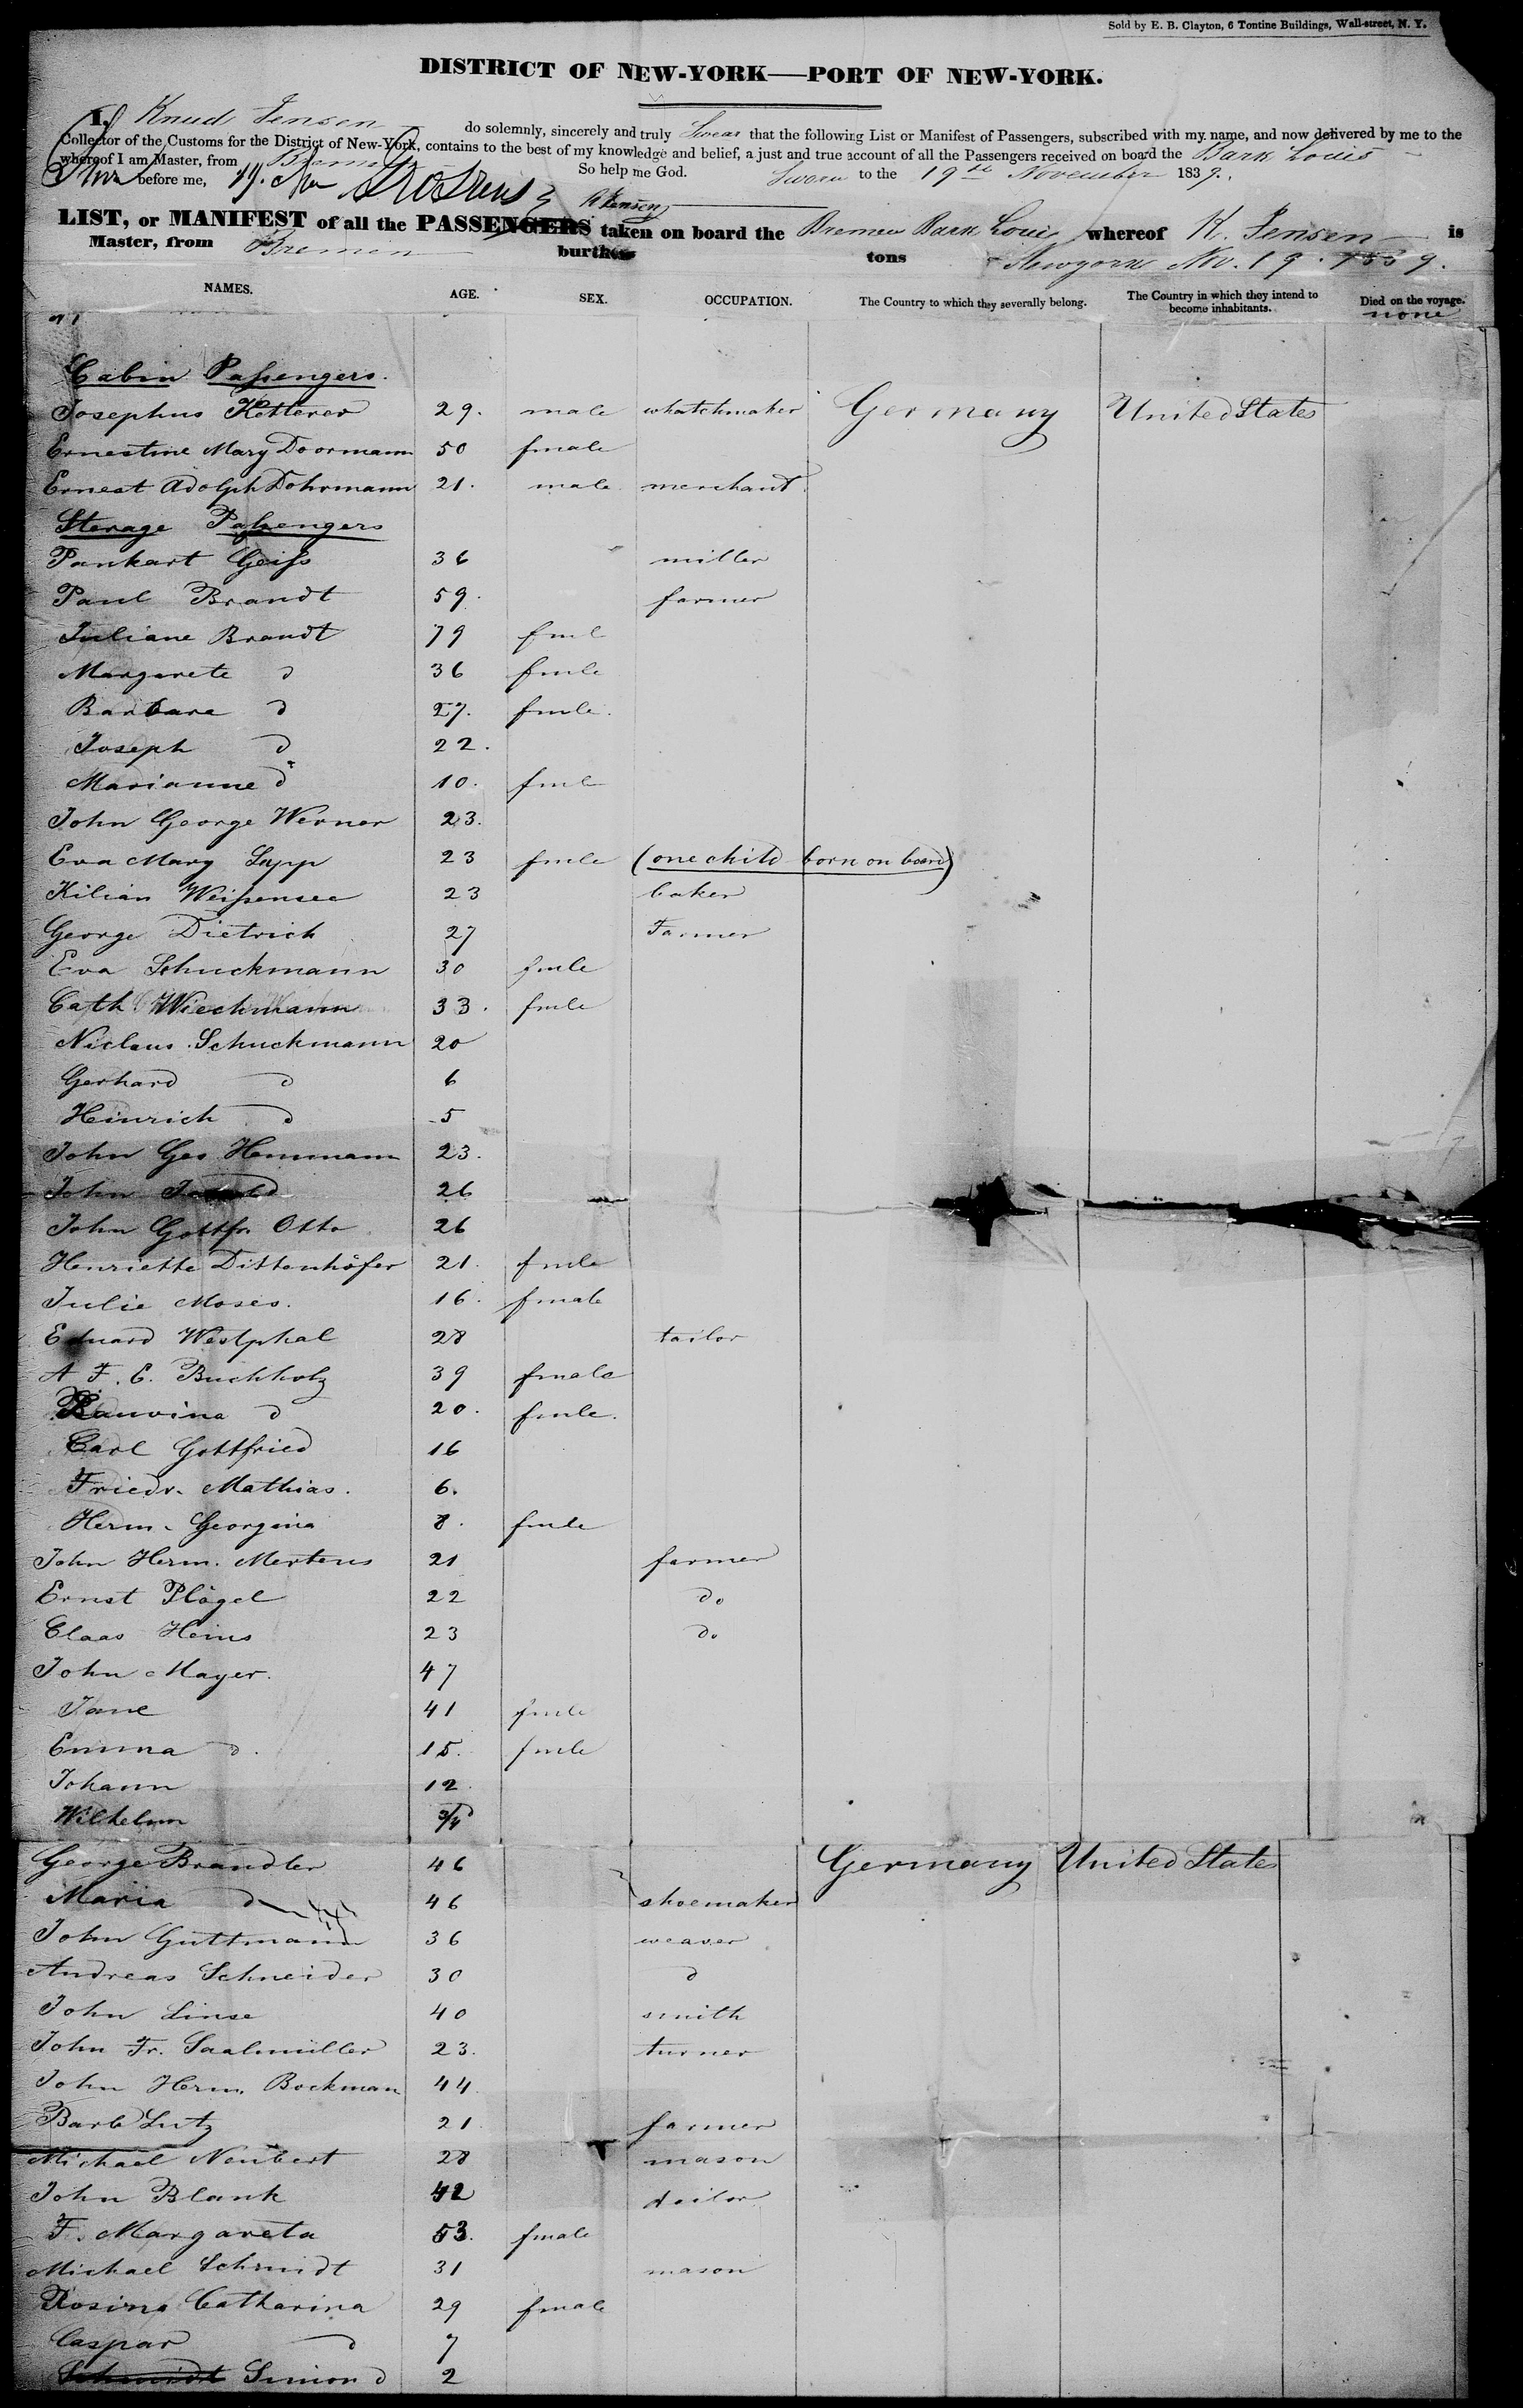 Sold by E. B. Clayton, 6 Tontine Buildings, Wall-street, N. Y.
DISTRICT OF NEW-YORK—PORT OF NEW-YORK.
I, Knud Jensen do solemnly, sincerely and truly Swear that the following List or Manifest of Passengers, subscribed with my name, and now delivered by me to the
Collector of the Customs for the District of New-York, contains to the best of my knowledge and belief, a just and true account of all the Passengers received on board the Bark Louis
whereof I am Master, from Bremen So help me God.
Sworn to the 19th November 1839.
before me, K Jensen
LIST, or MANIFEST of all the PASSENGERS taken on board the Bremen Bark Louis whereof K. Jensen is
Master, from Bremen burthen tons Newyork Nov. 19. 1839.
NAMES. AGE. SEX. OCCUPATION. The Country to which they severally belong. The Country in which they intend to become inhabitants. Died on the voyage.
none
Cabin Passengers.
Josephus Ketterer 29. male whatchmaker Germany United States
Ernestine Mary Doormann 50 fmale
Ernest Adolph Dohrmann 21. male merchant.
Sterage Passengers
Pankart Geiss 36 miller
Paul Brandt 59. farmer
Juliane Brandt 79 fml
Margarete d 36 fmle
Barbara d 27. fmle.
Joseph d 22.
Marianne d 10. fml
John George Werner 23.
Eva Mary Sapp 23 fmle (one child born on board)
Kilian Weissensee 23 baker
George Dietrich 27 Farmer
Eva Schuckmann 30 fmle
Cath. Wiechmann 33. fmle
Niclaus Schuckmann 20
Gerhard d 6
Heinrich d 5
John Geo Hemmann 23.
John 26
John Gottfr. Otto 26
Henriette Dittenhöfer 21. fmle
Julie Moses. 16. fmale
Eduard Westphal 28 tailor
A F. E. Buchholz 39 fmale
Rauvina d 20. fmle.
Carl Gottfried 16
Friedr. Mathias. 6.
Herm. Georgina 8. fmle
John Herm. Mertens 21 farmer
Ernst Plögel 22 do
Claas Heins 23 do
John Mayer. 47
Jane 41 fmle
Emma d. 15. fmle
Johann 12.
Wilhelm 3/4
George Brandler 46 Germany United States
Maria d 46 shoemaker
John Guttmann 36 weaver
Andreas Schneider 30 d
John Linse 40 smith
John Fr. Saalmüller 23. turner
John Herm. Bockman 44.
Barb Lutz 21 farmer
Michael Neubert 28 mason
John Blank 42 tailor
F. Margareta 53. fmale
Michael Schmidt 31 mason
Rosina Catharina 29 fmale
Caspar d 7
Schmidt Simon d 2